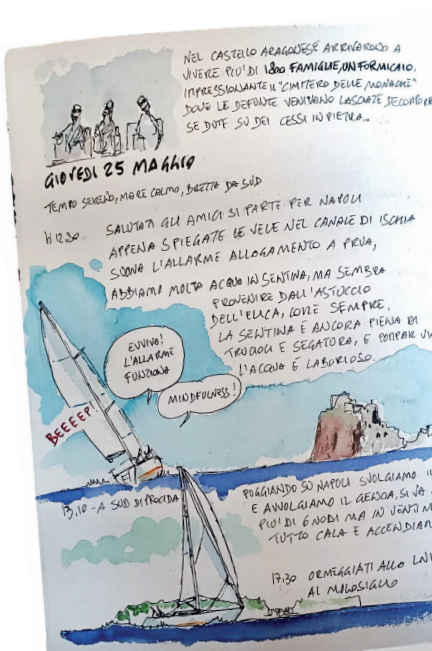 NEL CASTELLO ARAGONESE ARRIVARONO A
VIVERE PIU' DI 1800 FAMIGLIE, UN FORMICAIO.
IMPRESSIONANTE IL "CIMITERO DELLE MONACHE"
DOVE LE DEFUNTE VENIVANO LASCIATE
SEDUTE SU DEI CESSI IN PIETRA...
GIOVEDI 25 MAGGIO
TEMPO SERENO, MARE CALMO, BREZZA DA SUD
h 12.30
SALUTATI GLI AMICI SI PARTE PER NAPOLI
APPENA SPIEGATE LE VELE NEL CANALE DI ISCHIA
SUONA L'ALLARME ALLAGAMENTO A PRUA,
ABBIAMO MOLTA ACQUA IN SENTINA, MA SEMBRA
PROVENIRE DALL'ASTUCCIO
DELL'ELICA, COME SEMPRE.
LA SENTINA È ANCORA PIENA DI
TRUCIOLI E SEGATURA, E POMPAR
L'ACQUA È LABORIOSO.
EVVIVA!
L'ALLARME
FUNZIONA
MINDFULNESS!
BEEEEP!
13.10 - A SUD DI PROCIDA
POGGIANDO SU NAPOLI SVOLGIAMO
E AVVOLGIAMO IL GENOA, SI VA
PIU' DI 6 NODI MA IN VENTI
TUTTO CALA E
17.30 ORMEGGIATI ALLO
AL MOLOSIGLIO